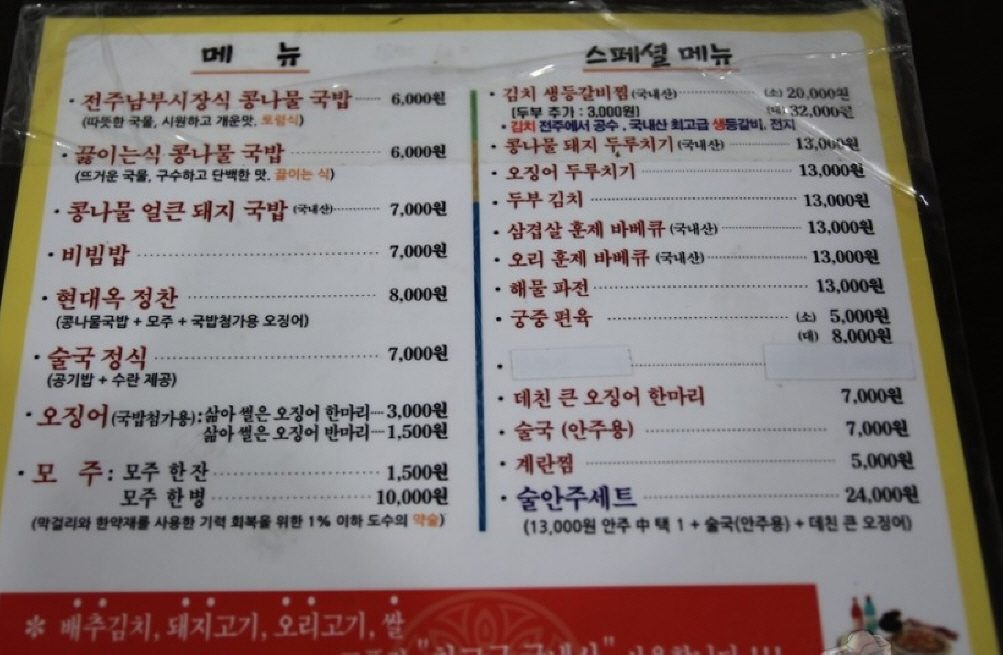 메 뉴
· 전주남부시장식 콩나물 국밥 ······ 6,000원
(따뜻한 국물, 시원하고 개운맛. 토렴식)
· 끓이는식 콩나물 국밥 ······ 6,000원
(뜨거운 국물, 구수하고 단백한 맛. 끓이는 식)
· 콩나물 얼큰 돼지 국밥 (국내산) ······ 7,000원
· 비빔밥 ······ 7,000원
· 현대옥 정찬 ······ 8,000원
(콩나물국밥 + 모주 + 국밥첨가용 오징어)
· 술국 정식 ······ 7,000원
(공기밥 + 수란 제공)
· 오징어 (국밥첨가용) : 삶아 썰은 오징어 한마리 ··· 3,000원
삶아 썰은 오징어 반마리 ··· 1,500원
· 모 주 : 모주 한 잔 ······ 1,500원
모주 한 병 ······ 10,000원
(막걸리와 한약재를 사용한 기력 회복을 위한 1% 이하 도수의 약술)
스페셜 메뉴
· 김치 생등갈비찜 (국내산) ······ (소) 20,000원
[두부 추가 : 3,000원] (대) 32,000원
· 김치 전주에서 공수 , 국내산 최고급 생등갈비, 전지
· 콩나물 돼지 두루치기 (국내산) ······ 13,000원
· 오징어 두루치기 ······ 13,000원
· 두부 김치 ······ 13,000원
· 삼겹살 훈제 바베큐 (국내산) ······ 13,000원
· 오리 훈제 바베큐 (국내산) ······ 13,000원
· 해물 파전 ······ 13,000원
· 궁중 편육 ······ (소) 5,000원
(대) 8,000원
· 데친 큰 오징어 한마리 7,000원
· 술국 (안주용) ······ 7,000원
· 계란찜 ······ 5,000원
· 술안주세트 ······ 24,000원
(13,000원 안주 中 택 1 + 술국(안주용) + 데친 큰 오징어)
※ 배추김치, 돼지고기, 오리고기, 쌀